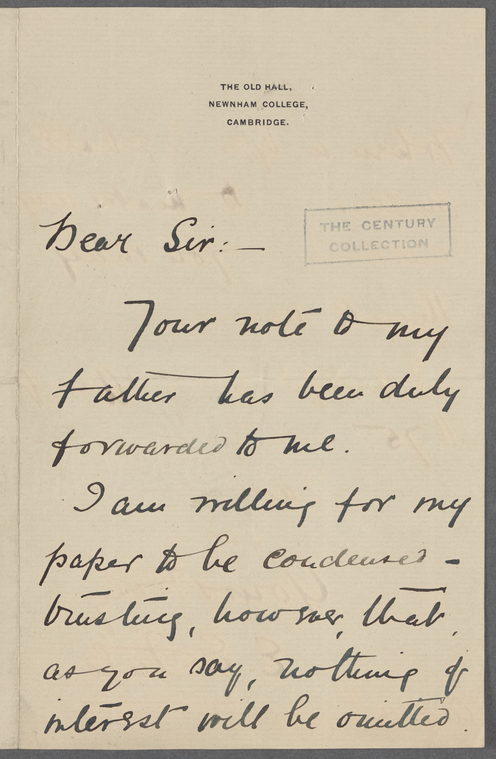 THE OLD HALL,
NEWNHAM COLLEGE,
CAMBRIDGE.
THE CENTURY
COLLECTION
Dear Sir:—
Your note to my
father has been duly
forwarded to me.
I am willing for my
paper to be condensed –
trusting, however, that,
as you say, nothing of
interest will be omitted.